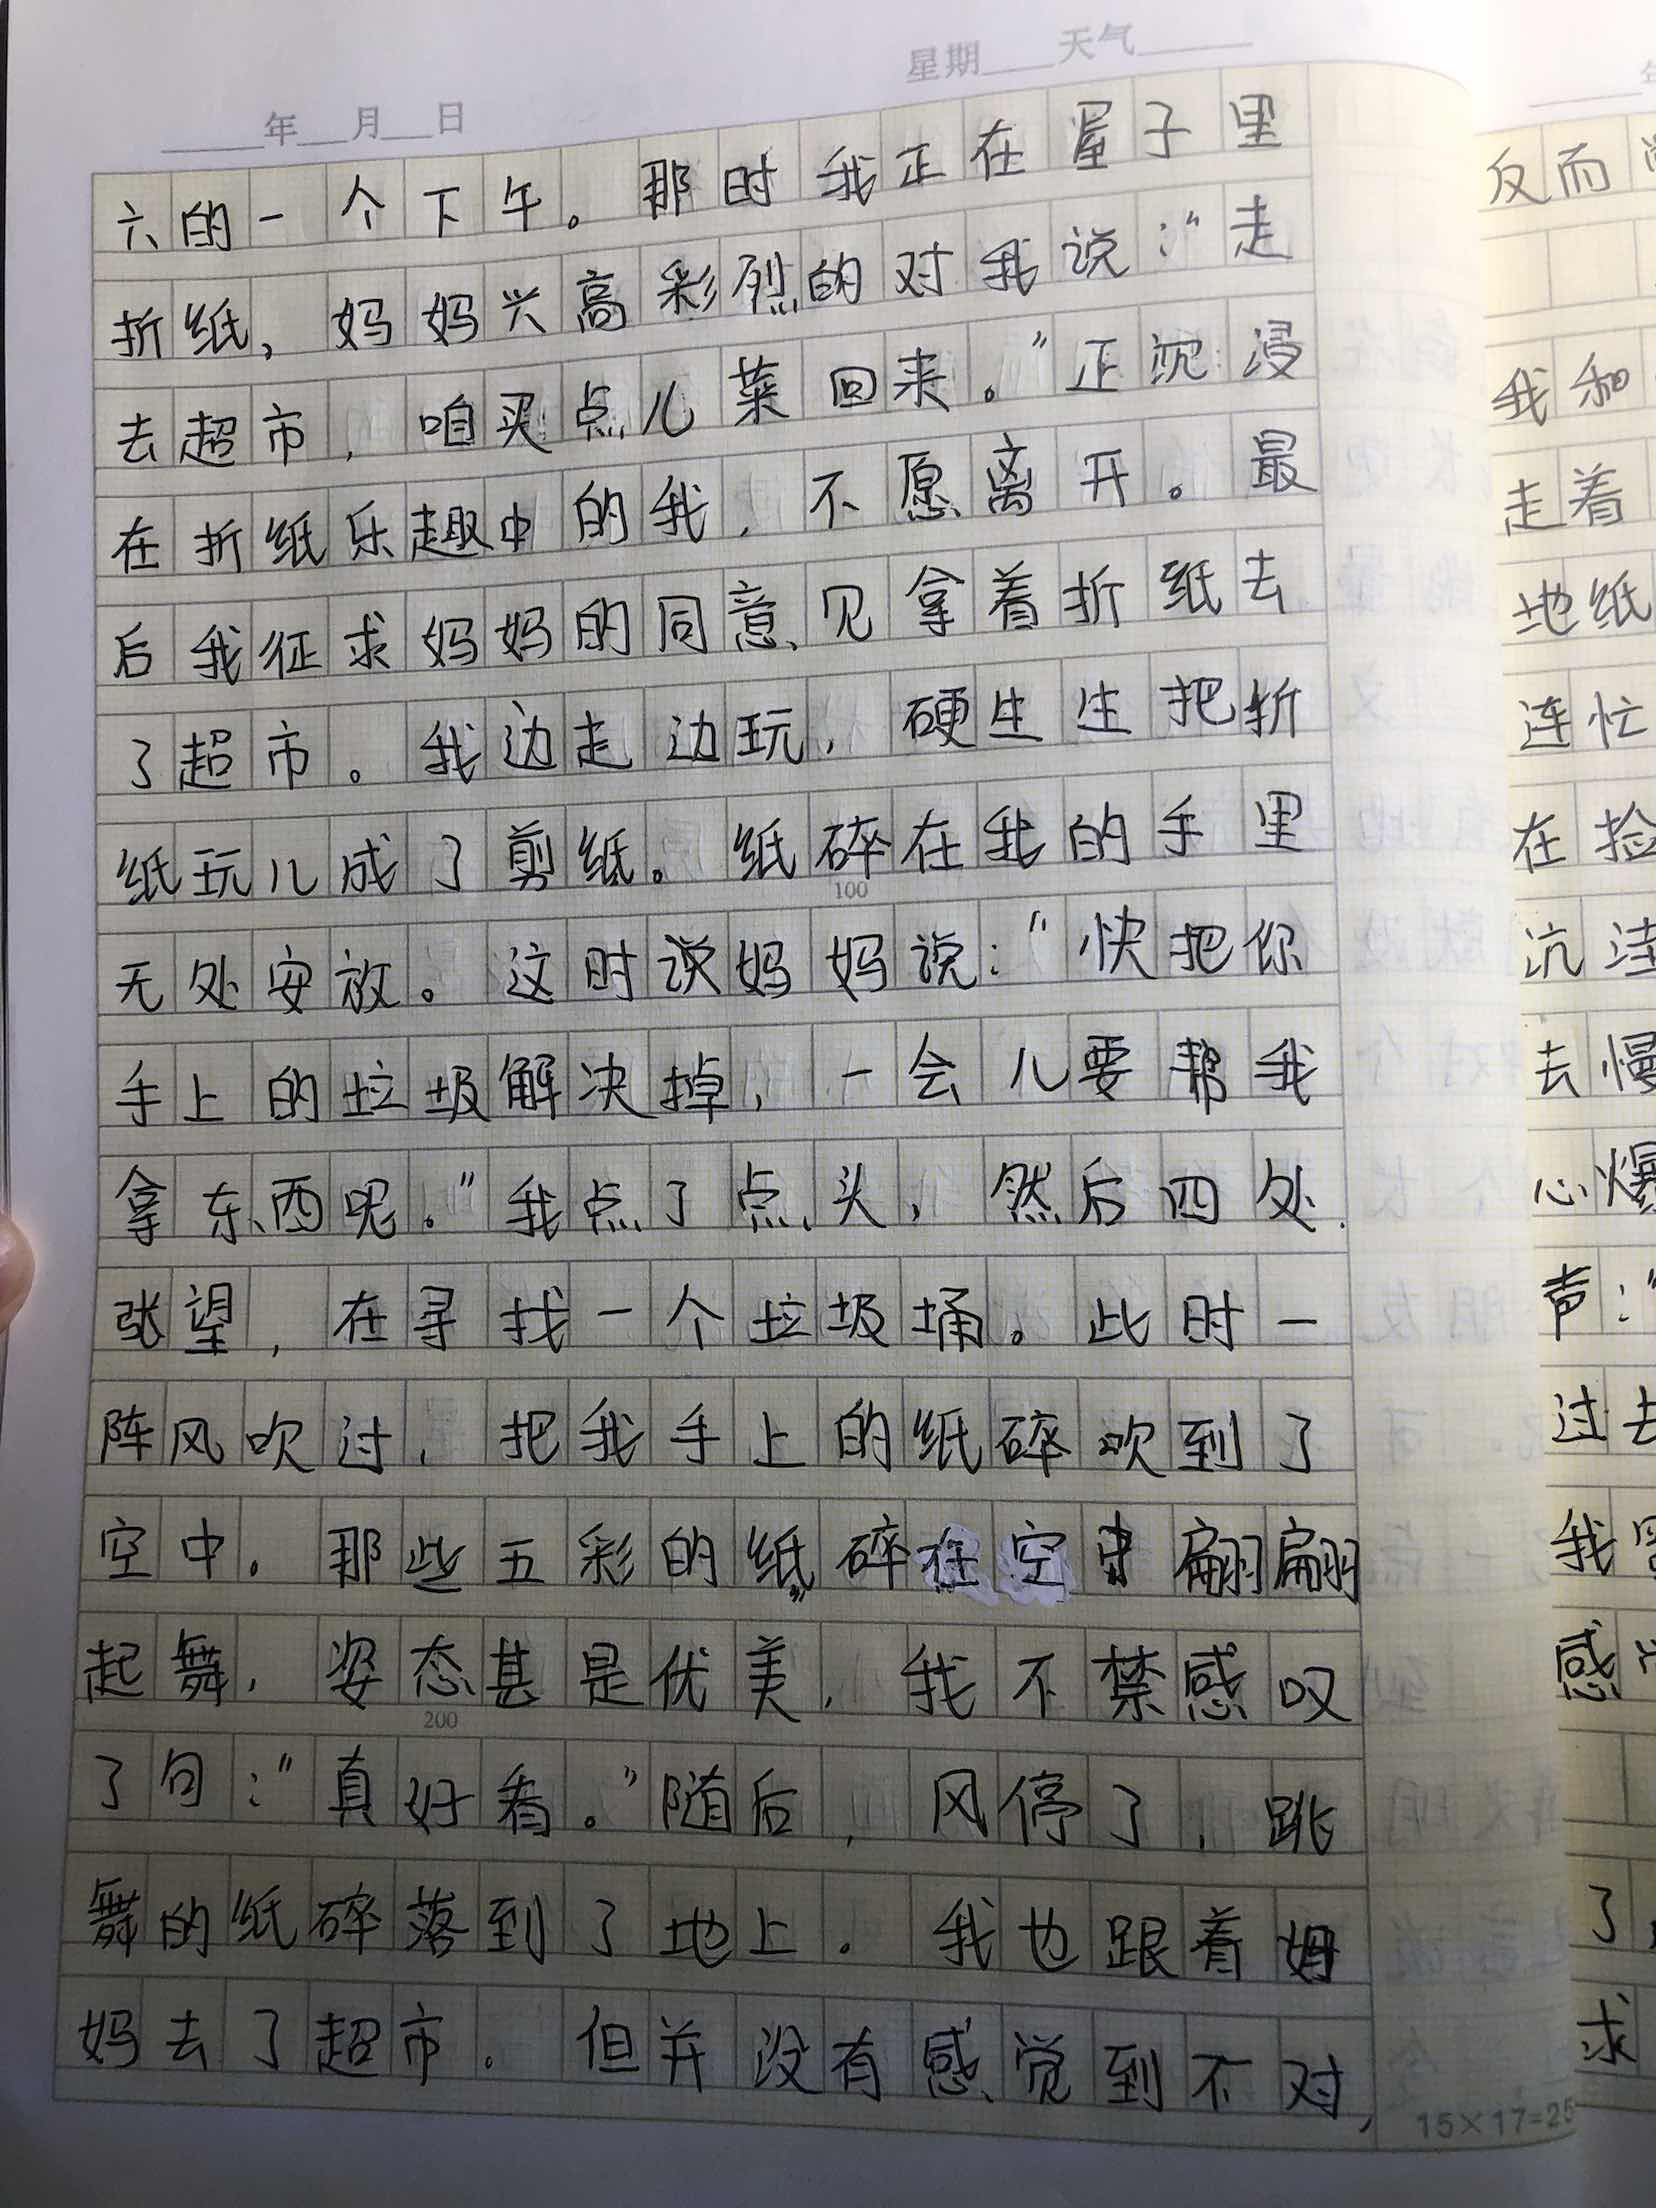 星期 天气
年 月 日
六的一个下午。那时我正在屋子里
折纸，妈妈兴高彩烈的对我说：“走
去超市，咱买点儿菜回来。”正沉浸
在折纸乐趣中的我，不愿离开。最
后我征求妈妈的同意见拿着折纸去
了超市。我边走边玩，硬生生把折
纸玩儿成了剪纸。纸碎在我的手里
100
无处安放。这时说妈妈说：“快把你
手上的垃圾解决掉，一会儿要帮我
拿东西呢。”我点了点头，然后四处
张望，在寻找一个垃圾桶。此时一
阵风吹过，把我手上的纸碎吹到了
空中。那些五彩的纸碎在空中翩翩
起舞，姿态甚是优美，我不禁感叹
200
了句：“真好看。”随后，风停了，跳
舞的纸碎落到了地上。我也跟着妈
妈去了超市。但并没有感觉到不对，
15×17=25
反而
我和
走着
地纸
连忙
在捡
沆洼
去慢
心爆
声：“
过去
我
感
了
求